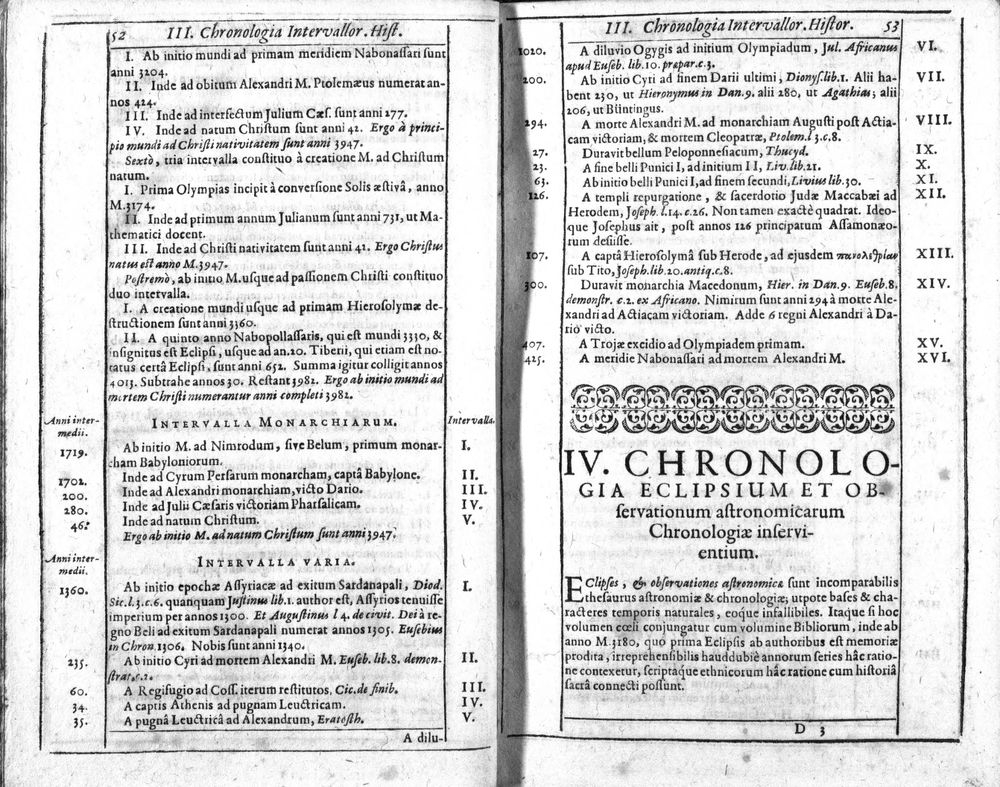 52 III. Chronologia Intervallor. Hist.
I. Ab initio mundi ad primam meridiem Nabonassari sunt
anni 3204.
II. Inde ad obitum Alexandri M. Ptolemæus numerat an-
nos 424.
III. Inde ad interfectum Julium Cæs. sunt anni 277.
IV. Inde ad natum Christum sunt anni 42. Ergo à princi-
pio mundi ad Christi nativitatem sunt anni 3947.
Sextò, tria intervalla constituo à creatione M. ad Christum
natum.
I. Prima Olympias incipit à conversione Solis æstivâ, anno
M. 3174.
II. Inde ad primum annum Julianum sunt anni 731, ut Ma-
thematici docent.
III. Inde ad Christi nativitatem sunt anni 42. Ergo Christus
natus est anno M. 3947.
Postremò, ab initio M. usque ad passionem Christi constituo
duo intervalla.
I. A creatione mundi usque ad primam Hierosolymæ de-
structionem sunt anni 3360.
II. A quinto anno Nabopollassaris, qui est mundi 3330, &
insignitus est Eclipsi, usque ad an. 20. Tiberii, qui etiam est no-
tatus certâ Eclipsi, sunt anni 652. Summa igitur colligit annos
4013. Subtrahe annos 30. Restant 3982. Ergo ab initio mundi ad
mortem Christi numerantur anni completi 3982.
Anni inter-
medii.
INTERVALLA MONARCHIARUM.
Intervalla.
1719. Ab initio M. ad Nimrodum, sive Belum, primum monar- I.
cham Babyloniorum.
1702. Inde ad Cyrum Persarum monarcham, captâ Babylone. II.
200. Inde ad Alexandri monarchiam, victo Dario. III.
280. Inde ad Julii Cæsaris victoriam Pharsalicam. IV.
46. Inde ad natum Christum. V.
Ergo ab initio M. ad natum Christum sunt anni 3947.
Anni inter-
medii.
INTERVALLA VARIA.
1360. Ab initio epochæ Assyriacæ ad exitum Sardanapali, Diod. I.
Sic. l. 3. c. 6. quanquam Justinus lib. 1. author est, Assyrios tenuisse
imperium per annos 1300. Et Augustinus l 4. de civit. Dei à re-
gno Beli ad exitum Sardanapali numerat annos 1305. Eusebius
in Chron. 1306. Nobis sunt anni 1340.
235. Ab initio Cyri ad mortem Alexandri M. Euseb. lib. 8. demon- II.
strat. c. 2.
60. A Regifugio ad Coss. iterum restitutos, Cic. de finib. III.
34. A captis Athenis ad pugnam Leuctricam. IV.
35. A pugnâ Leuctricâ ad Alexandrum, Eratosth. V.
A dilu-
III. Chronologia Intervallor. Histor. 53
1020. A diluvio Ogygis ad initium Olympiadum, Jul. Africanus VI.
apud Euseb. lib. 10. præpar. c. 3.
200. Ab initio Cyri ad finem Darii ultimi, Dionys. lib. 1. Alii ha- VII.
bent 230, ut Hieronymus in Dan. 9. alii 280, ut Agathias; alii
206, ut Büntingus.
294. A morte Alexandri M. ad monarchiam Augusti post Actia- VIII.
cam victoriam, & mortem Cleopatræ, Ptolem. l 3. c. 8.
27. Duravit bellum Peloponnesiacum, Thucyd. IX.
23. A fine belli Punici I, ad initium II, Liv. lib. 21. X.
63. Ab initio belli Punici I, ad finem secundi, Livius lib. 30. XI.
126. A templi repurgatione, & sacerdotio Judæ Maccabæi ad XII.
Herodem, Joseph. l. 14. c. 26. Non tamen exactè quadrat. Ideo-
que Josephus ait, post annos 126 principatum Assamonæo-
rum desiisse.
107. A captâ Hierosolymâ sub Herode, ad ejusdem πανολεθρίαν XIII.
sub Tito, Joseph. lib. 20. antiq. c. 8.
300. Duravit monarchia Macedonum, Hier. in Dan. 9. Euseb. 8. XIV.
demonstr. c. 2. ex Africano. Nimirum sunt anni 294 à morte Ale-
xandri ad Actiacam victoriam. Adde 6 regni Alexandri à Da-
rio victo.
407. A Trojæ excidio ad Olympiadem primam. XV.
425. A meridie Nabonassari ad mortem Alexandri M. XVI.
IV. CHRONOLO-
GIA ECLIPSIUM ET OB-
servationum astronomicarum
Chronologiæ inservi-
entium.
EClipses, & observationes astronomicæ sunt incomparabilis
thesaurus astronomiæ & chronologiæ; utpote bases & cha-
racteres temporis naturales, eoque infallibiles. Itaque si hoc
volumen cœli conjungatur cum volumine Bibliorum, inde ab
anno M. 3180, quo prima Eclipsis ab authoribus est memoriæ
prodita, irreprehensibilis hauddubiè annorum series hâc ratio-
ne contexetur, scriptaque ethnicorum hâc ratione cum historiâ
sacrâ connecti possunt.
D 3